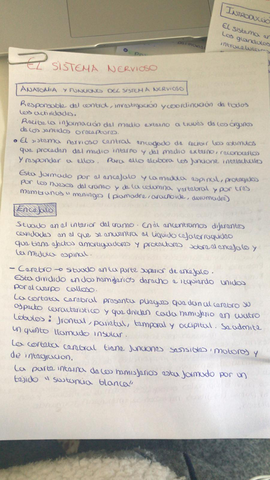 INTRODUCC
El sistema n
EL SISTEMA NERVIOSO
ANATOMIA Y FUNCIONES DEL SISTEMA NERVIOSO
Responsable del control, investigación y coordinación de todas
las actividades.
Recibe la información del medio externo a través de los órganos
de los sentidos o sensitivos.
El sistema nervioso central encargado de captar los estímulos
que procedan del medio interno y del medio externo, reconocerlos
y responder a ellos. Para ello elabora las funciones intelectuales
Esta formado por el encéfalo y la médula espinal, protegidos
por los huesos del cráneo y de la columna vertebral y por tres
membranas o meninges (piamadre, aracnoides, duramadre)
Encéfalo
Situado en el interior del cráneo. En él encontramos diferentes
cavidades en el que se encuentra el líquido cefalorraquídeo
que tiene efectos amortiguadores y protectores sobre el encéfalo y
la médula espinal.
- Cerebro → situado en la parte superior de encéfalo.
Esta dividido en dos hemisferios derecho e izquierdo unidos
por el cuerpo calloso
La corteza cerebral presenta pliegues que dan al cerebro su
aspecto característico y que dividen cada hemisferio en cuatro
lóbulos: frontal, parietal, temporal y occipital. Se admite
un quinto llamado insular.
La corteza cerebral tiene funciones sensibles, motores y
de integración.
La parte interna de los hemisferios esta formada por un
tejido "sustancia blanca"